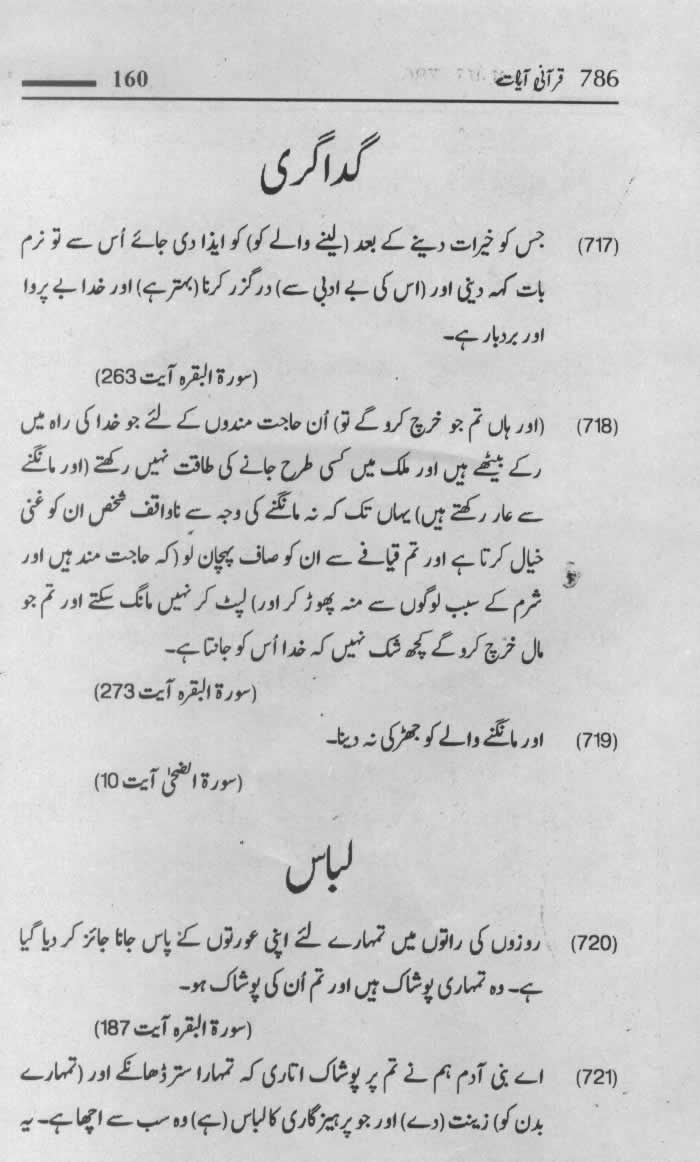 786 قرآنی آیات 160
گداگری
(717) جس کو خیرات دینے کے بعد (لینے والے کو) کو ایذا دی جائے اُس سے تو نرم
بات کہہ دینی اور (اس کی بے ادبی سے) درگزر کرنا (بہتر ہے) اور خدا بے پروا
اور بردبار ہے۔
(سورۃ البقرہ آیت 263)
(718) (اور ہاں تم جو خرچ کرو گے تو) اُن حاجت مندوں کے لئے جو خدا کی راہ میں
رکے بیٹھے ہیں اور ملک میں کسی طرح جانے کی طاقت نہیں رکھتے (اور مانگنے
سے عار رکھتے ہیں) یہاں تک کہ نہ مانگنے کی وجہ سے ناواقف شخص ان کو غنی
خیال کرتا ہے اور تم قیافے سے ان کو صاف پہچان لو (کہ حاجت مند ہیں اور
شرم کے سبب لوگوں سے منہ پھوڑ کر اور) لپٹ کر نہیں مانگ سکتے اور تم جو
مال خرچ کرو گے کچھ شک نہیں کہ خدا اُس کو جانتا ہے۔
(سورۃ البقرہ آیت 273)
(719) اور مانگنے والے کو جھڑکی نہ دینا۔
(سورۃ الضحیٰ آیت 10)
لباس
(720) روزوں کی راتوں میں تمہارے لئے اپنی عورتوں کے پاس جانا جائز کر دیا گیا
ہے۔ وہ تمہاری پوشاک ہیں اور تم اُن کی پوشاک ہو۔
(سورۃ البقرہ آیت 187)
(721) اے بنی آدم ہم نے تم پر پوشاک اتاری کہ تمہارا ستر ڈھانکے اور (تمہارے
بدن کو) زینت (دے) اور جو پرہیزگاری کا لباس (ہے) وہ سب سے اچھا ہے۔ یہ